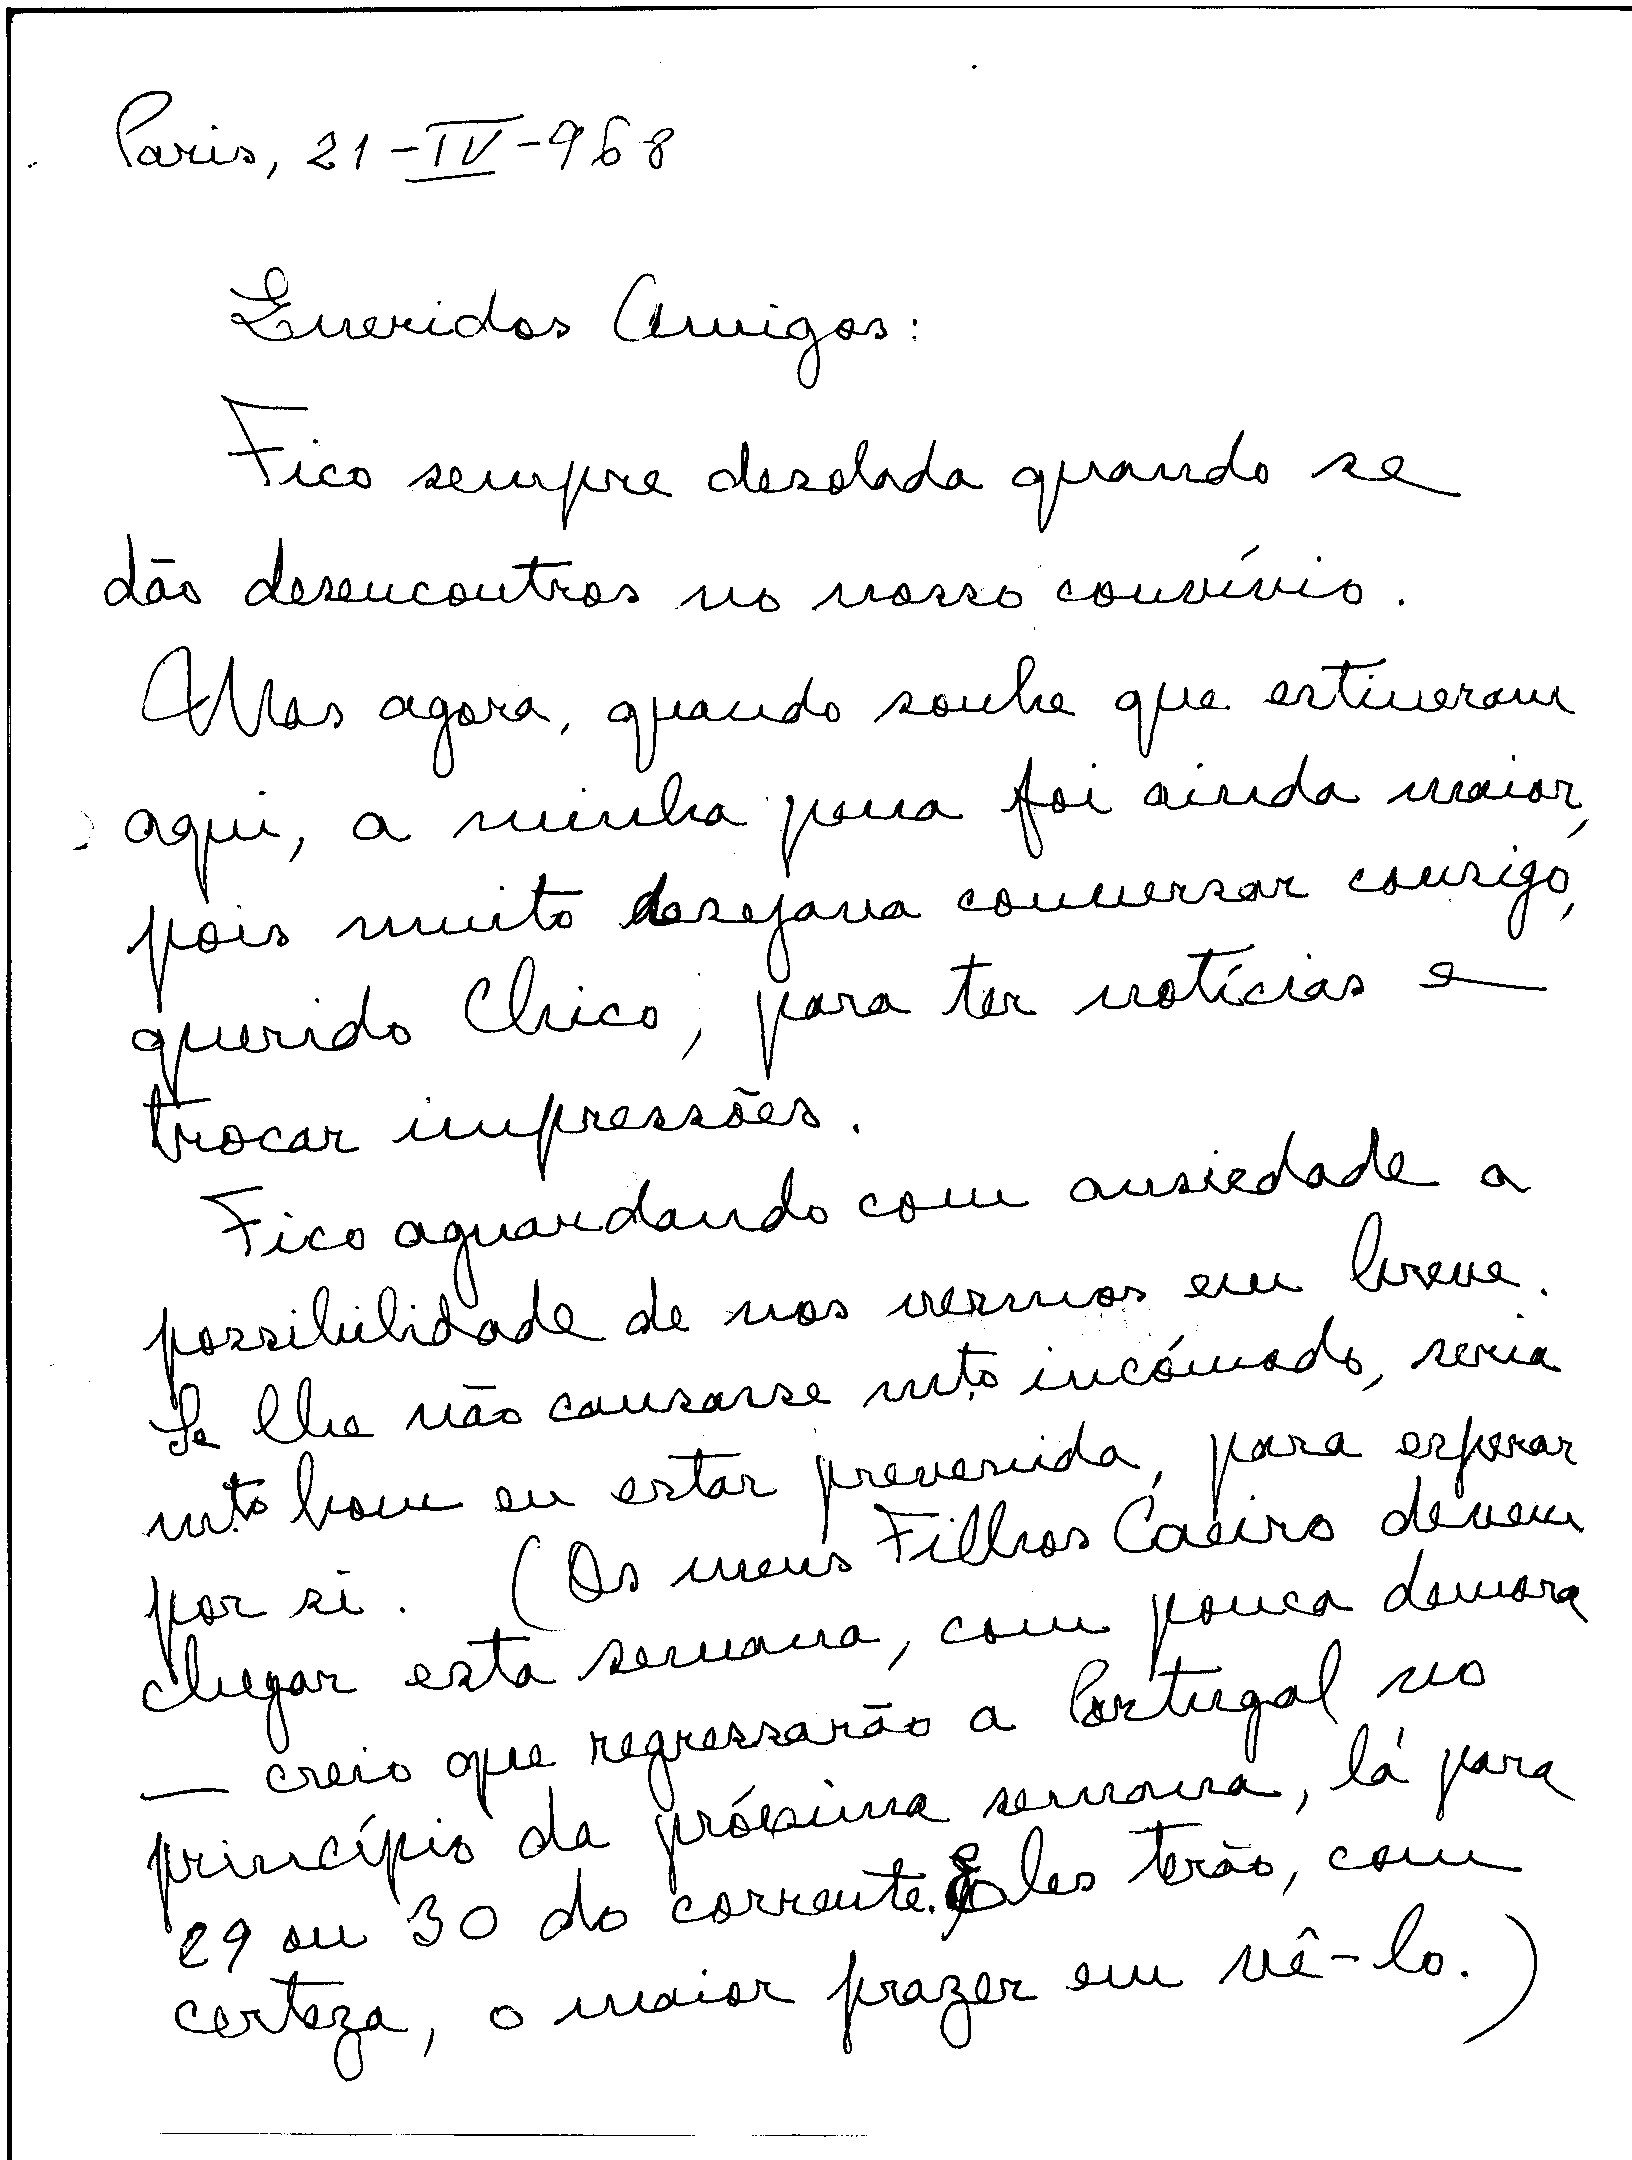 Paris, 21-IV-968
Queridos Amigos:
Fico sempre desolada quando se
dão desencontros no nosso convívio.
Mas agora, quando soube que estiveram
aqui, a minha pena foi ainda maior,
pois muito desejava conversar consigo,
querido Chico, para ter notícias e
trocar impressões.
Fico aguardando com ansiedade a
possibilidade de nos vermos em breve.
Se lhe não causasse mto incómodo, seria
mto bom eu estar prevenida, para esperar
por si. (Os meus Filhos Caeiro devem
chegar esta semana, com pouca demora
— creio que regressarão a Portugal no
princípio da próxima semana, lá para
29 ou 30 do corrente. Eles terão, com
certeza, o maior prazer em vê-lo.)